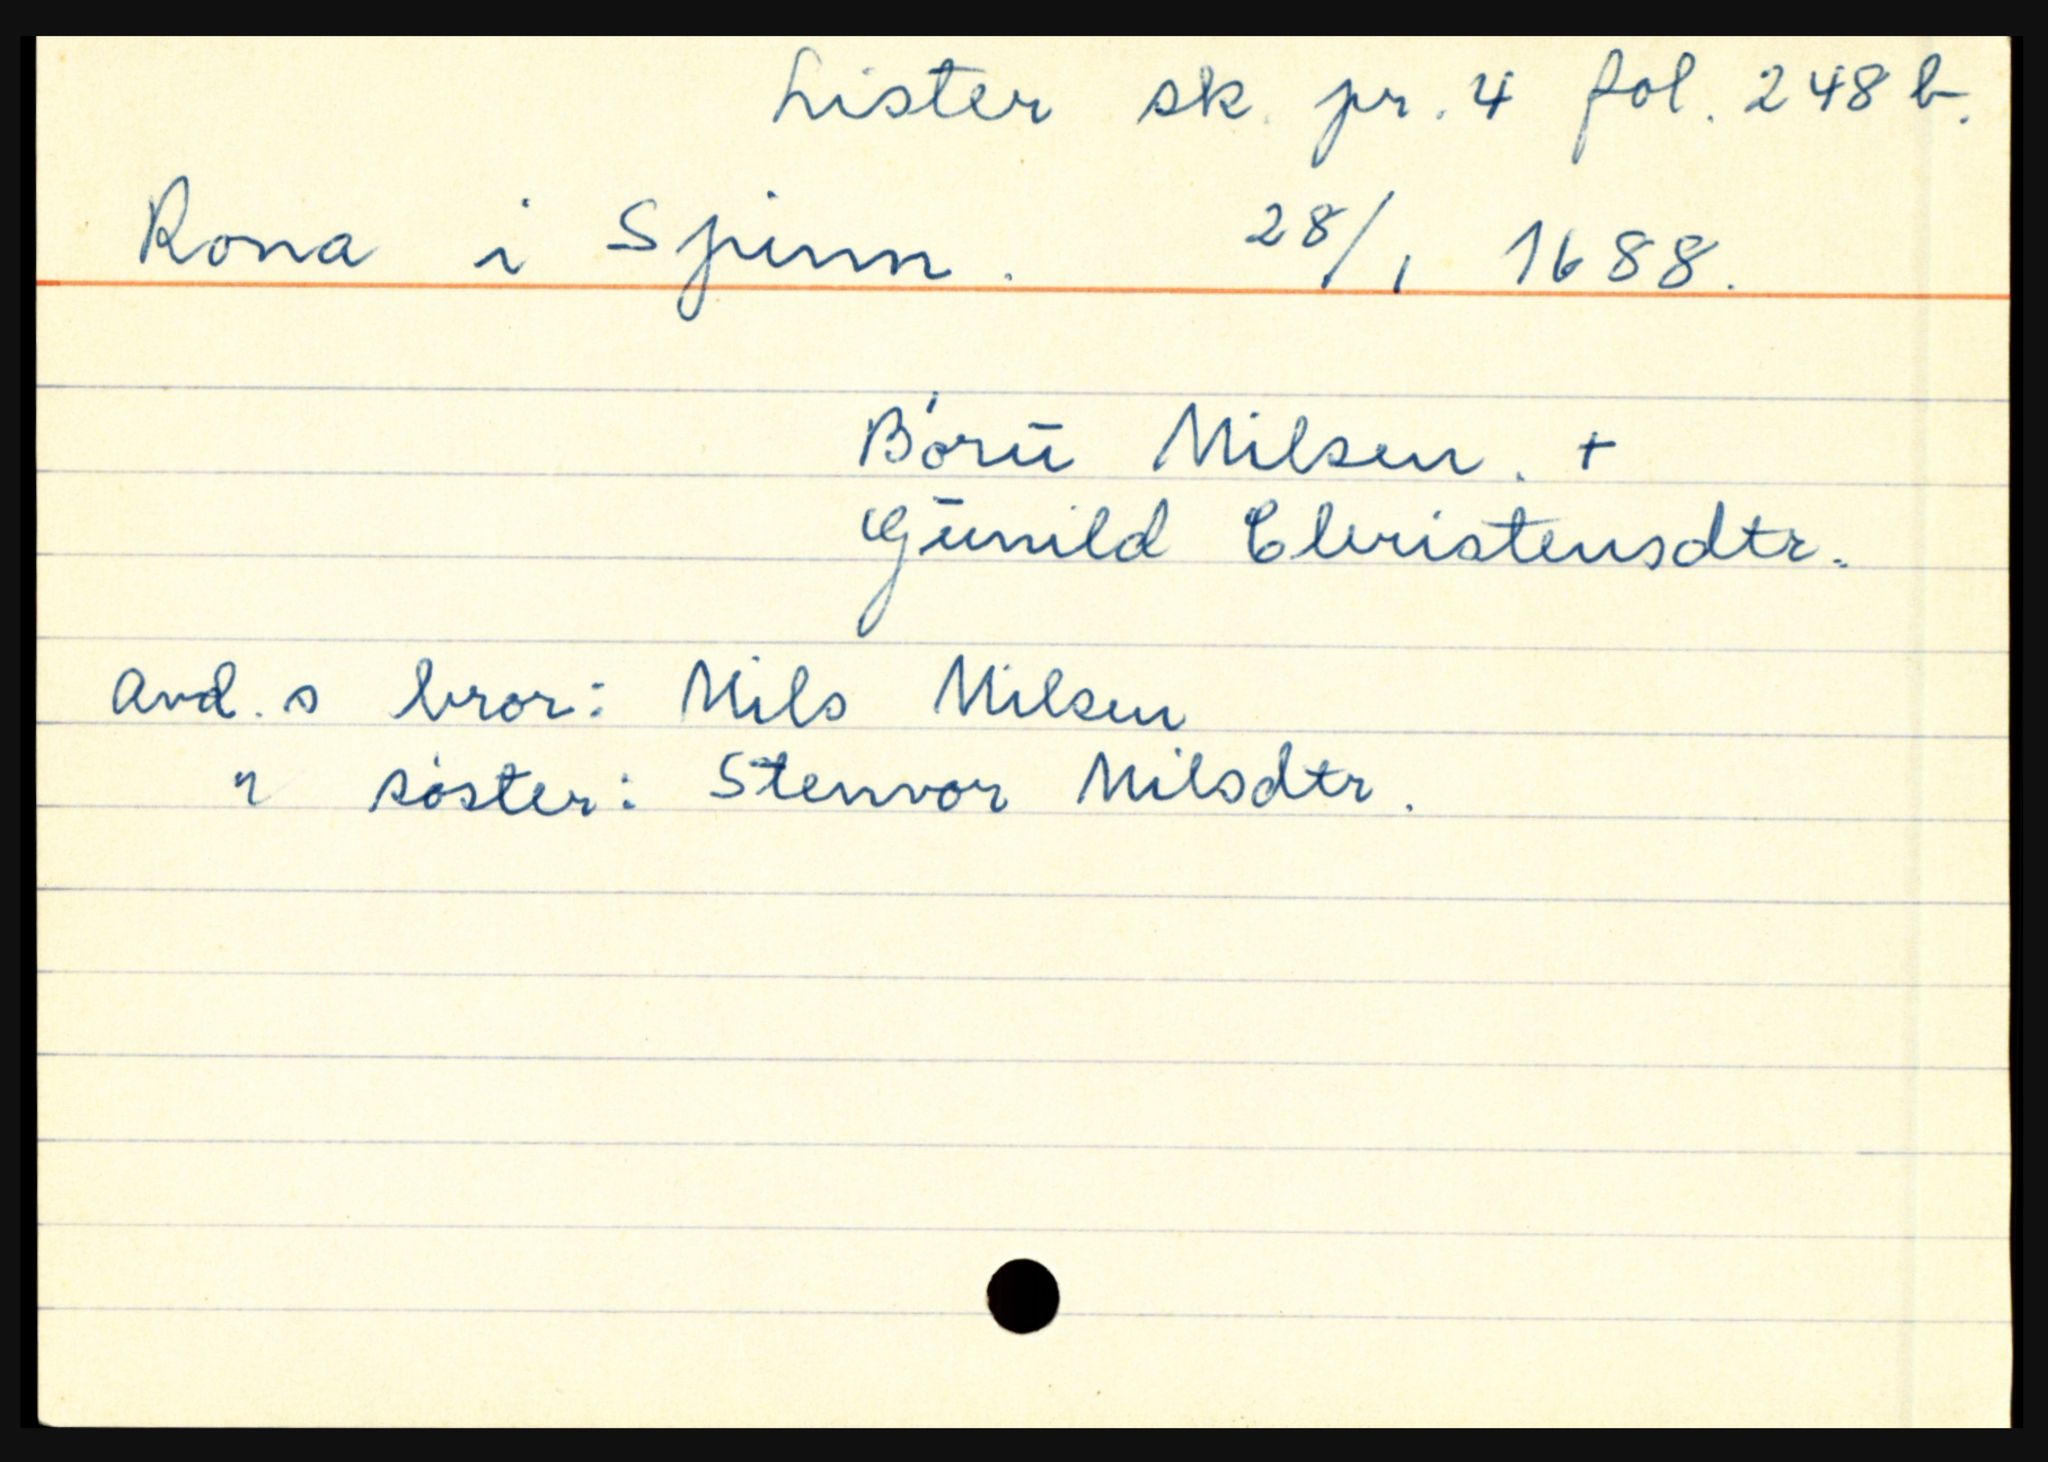 Lister sk. pr. 4 fol. 248 b.
Rona i Spinn. 28/1 1688.
Börū Nilsen. +
Gūnild Christensdtr.
Avd. s bror: Nils Nilsen
" söster: Stenvor Nilsdtr.